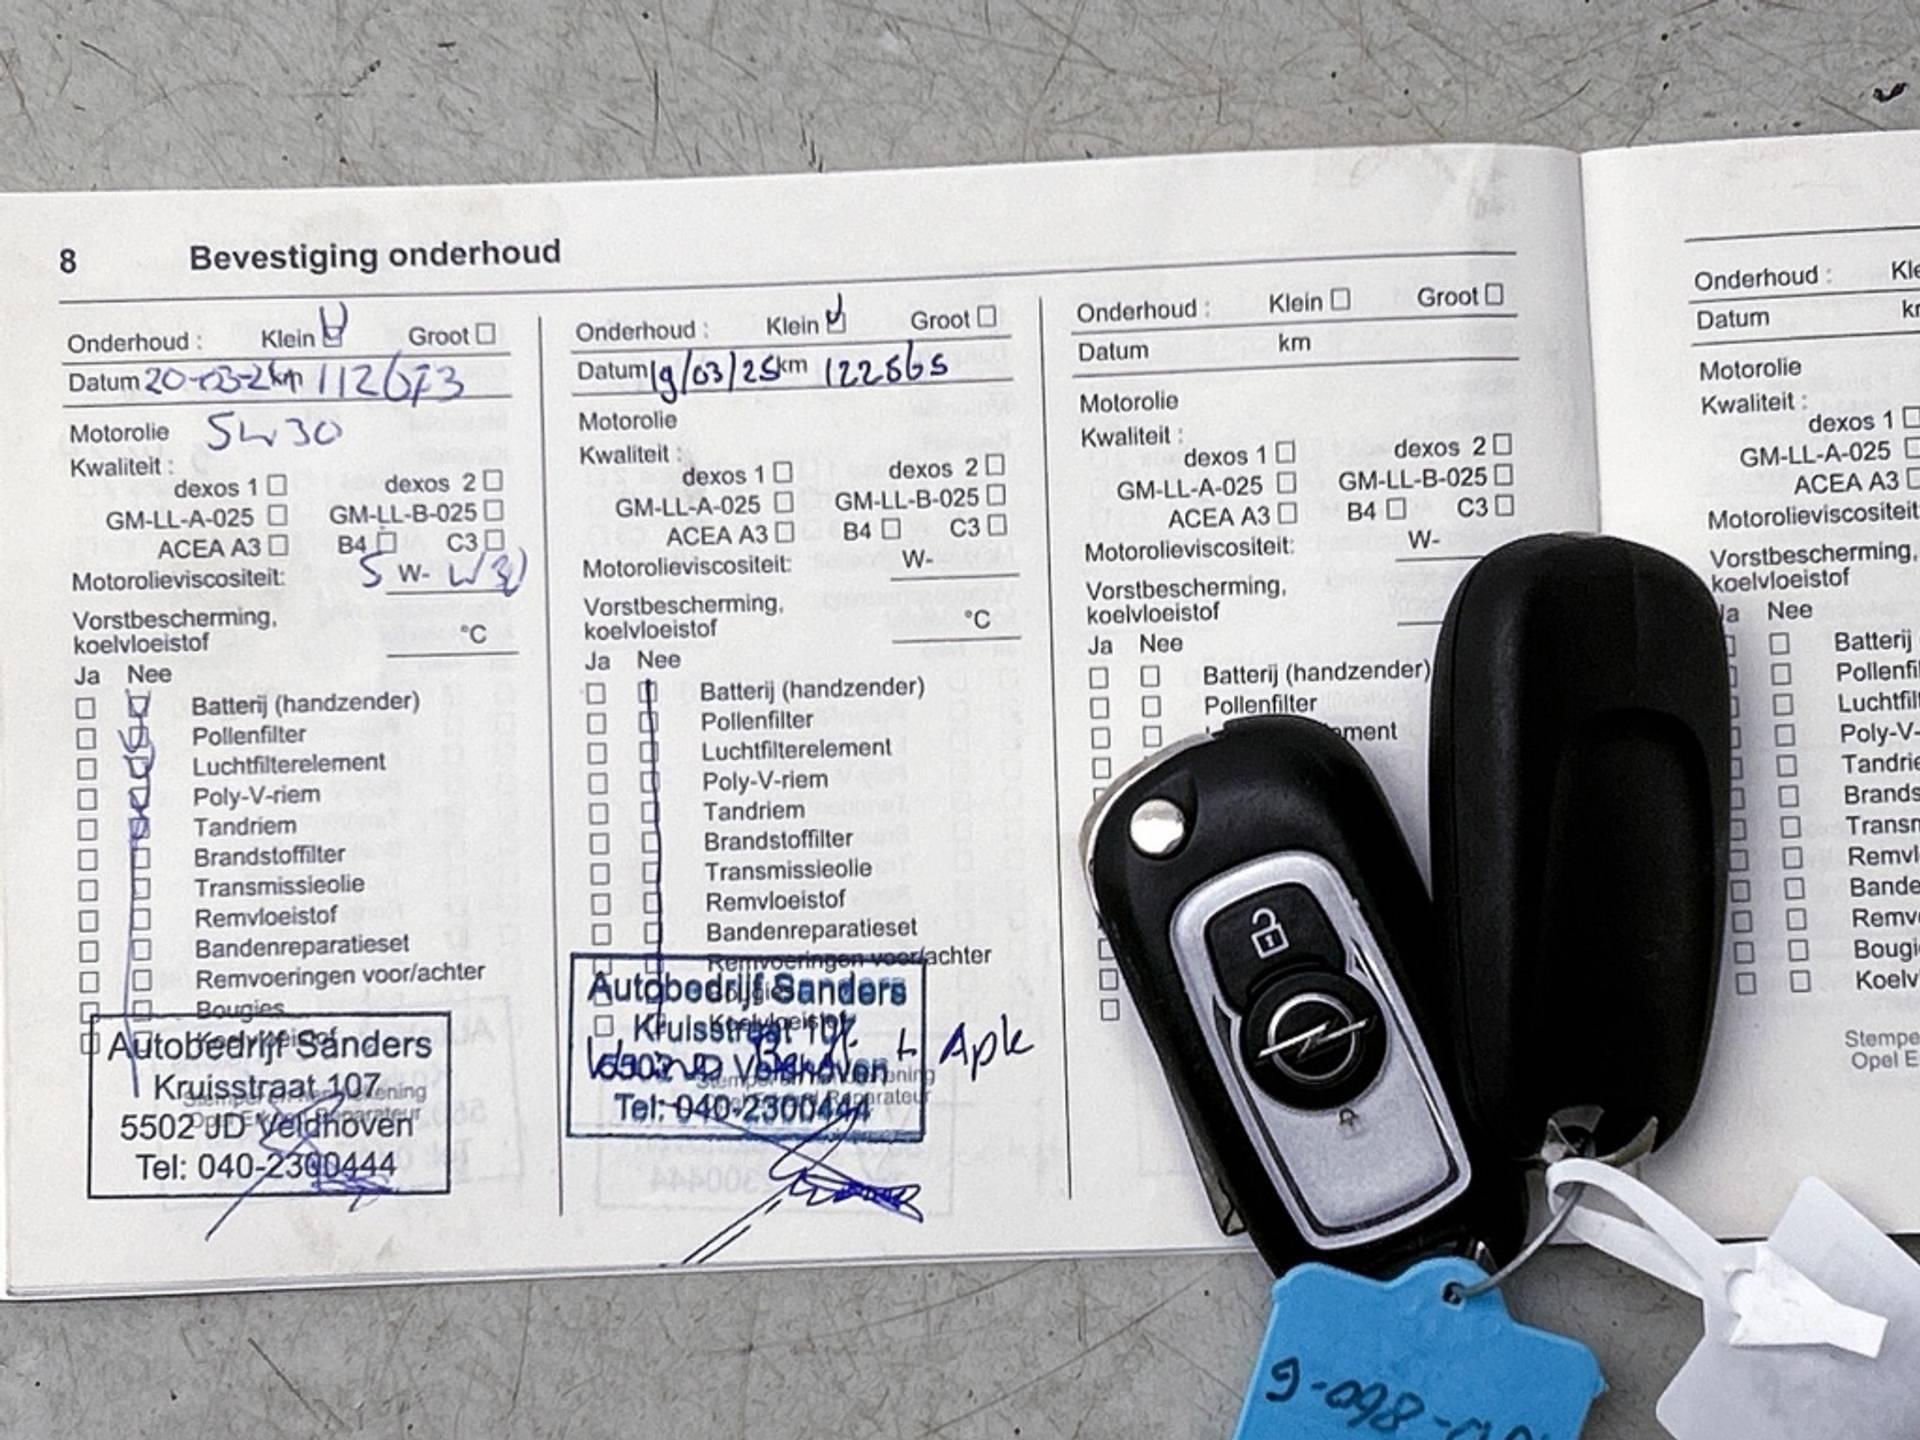 8 Bevestiging onderhoud
Onderhoud : Klein Groot
Datum 20-03-24 km 112673
Motorolie 5W30
Kwaliteit :
dexos 1 dexos 2
GM-LL-A-025 GM-LL-B-025
ACEA A3 B4 C3
Motorolieviscositeit: 5 W- W30
Vorstbescherming,
koelvloeistof °C
Ja Nee
Batterij (handzender)
Pollenfilter
Luchtfilterelement
Poly-V-riem
Tandriem
Brandstoffilter
Transmissieolie
Remvloeistof
Bandenreparatieset
Remvoeringen voor/achter
Bougies
Koelvloeistof
Autobedrijf Sanders
Kruisstraat 107
5502 JD Veldhoven
Tel: 040-2300444
Stempel en handtekening
Opel Erkend Reparateur
Onderhoud : Klein Groot
Datum 19/03/25 km 122565
Motorolie
Kwaliteit :
dexos 1 dexos 2
GM-LL-A-025 GM-LL-B-025
ACEA A3 B4 C3
Motorolieviscositeit: W-
Vorstbescherming,
koelvloeistof °C
Ja Nee
Batterij (handzender)
Pollenfilter
Luchtfilterelement
Poly-V-riem
Tandriem
Brandstoffilter
Transmissieolie
Remvloeistof
Bandenreparatieset
Remvoeringen voor/achter
Bougies
Koelvloeistof
Autobedrijf Sanders
Kruisstraat 107
5502 JD Veldhoven
Tel: 040-2300444
+ Apk
Stempel en handtekening
Opel Erkend Reparateur
Onderhoud : Klein Groot
Datum km
Motorolie
Kwaliteit :
dexos 1 dexos 2
GM-LL-A-025 GM-LL-B-025
ACEA A3 B4 C3
Motorolieviscositeit: W-
Vorstbescherming,
koelvloeistof
Ja Nee
Batterij (handzender)
Pollenfilter
ment
Onderhoud : Kle
Datum km
Motorolie
Kwaliteit :
dexos 1
GM-LL-A-025
ACEA A3
Motorolieviscositeit
Vorstbescherming,
koelvloeistof
Ja Nee
Batterij
Pollenfil
Luchtfilt
Poly-V-
Tandrie
Brands
Transm
Remvl
Bande
Remv
Bougie
Koelv
Stempe
Opel E